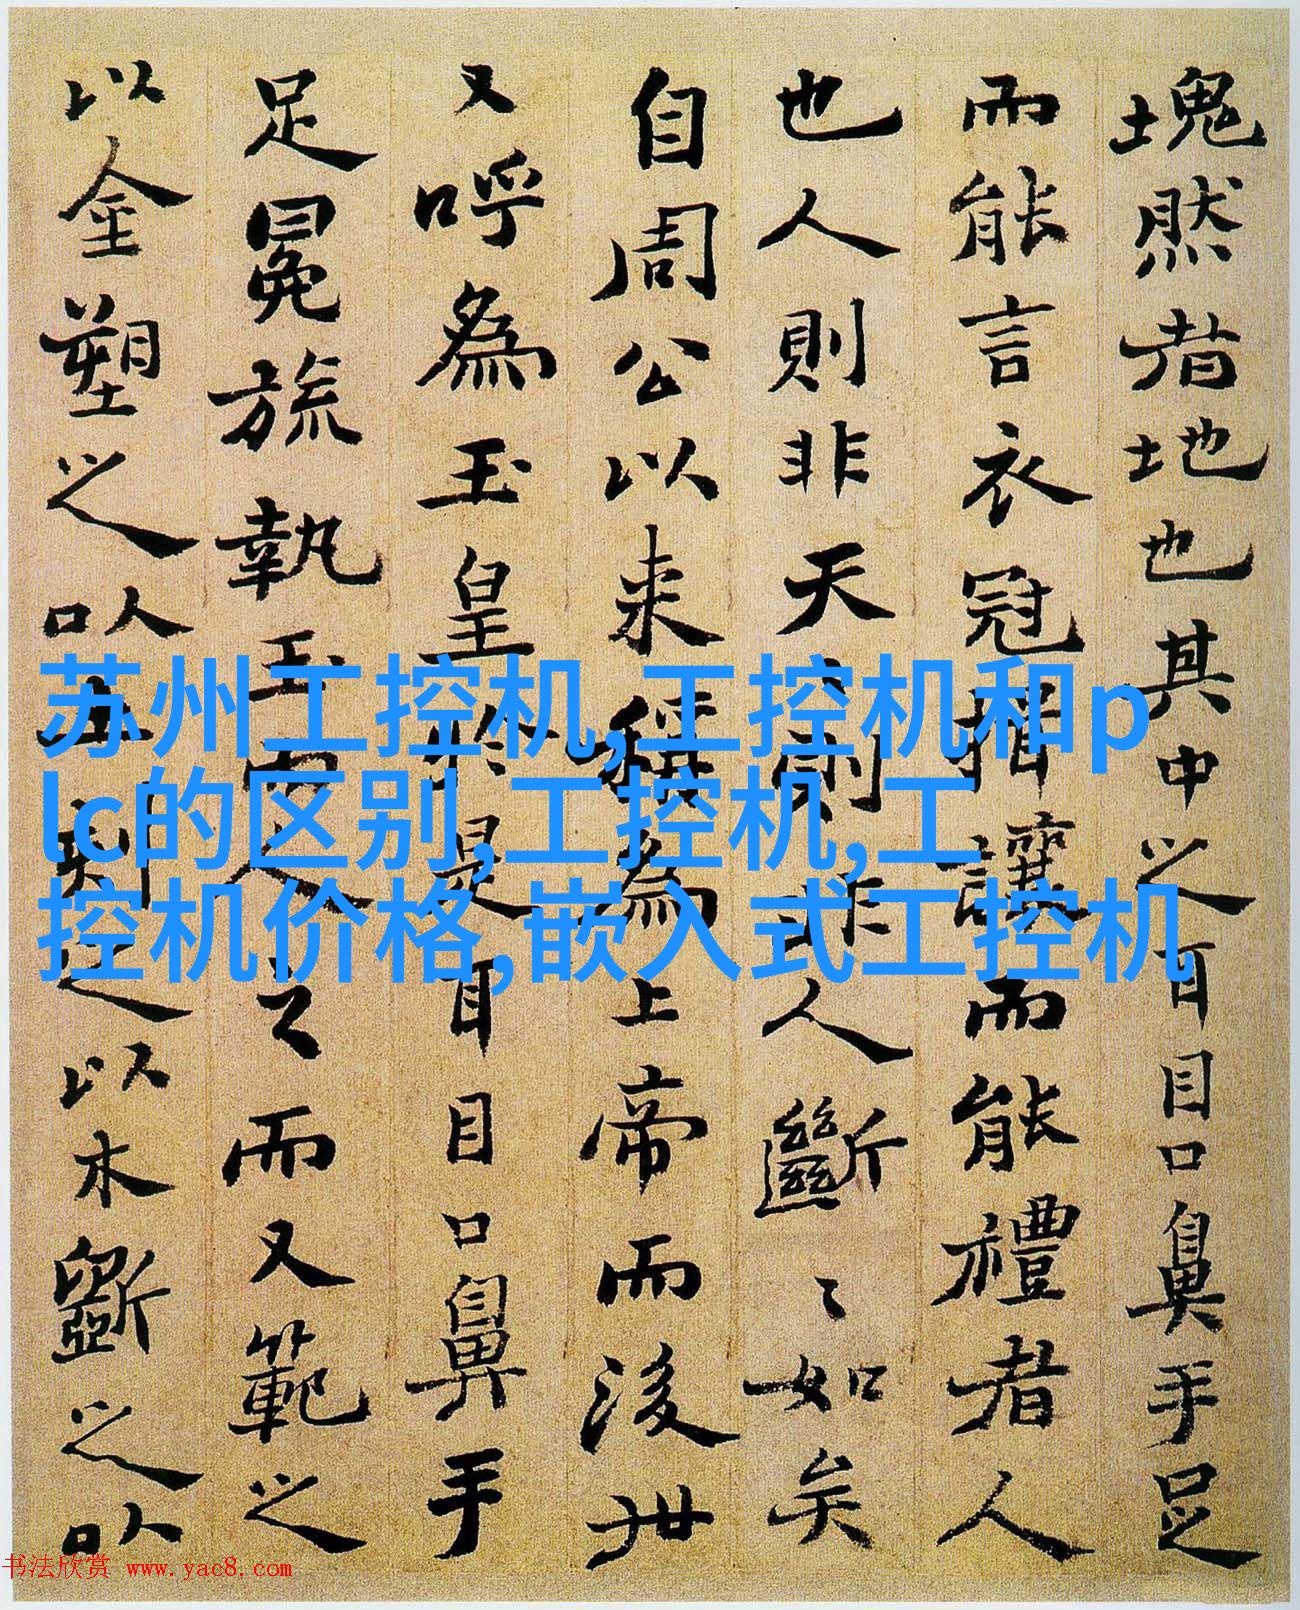 塊然者地也其中之耳目口鼻手足
而能言衣冠揖讓而能禮者人
也人則非天〻則非人斷〻如矣
自周公以来稱為上帝而後世
又呼為玉皇於是耳目口鼻手
足冕旒執玉而人之而又範之
以金塑之以土刻之以木斲之以
苏州工控机,工控机和p
lc的区别,工控机,工
控机价格,嵌入式工控机
书法欣赏 www.yac8.com